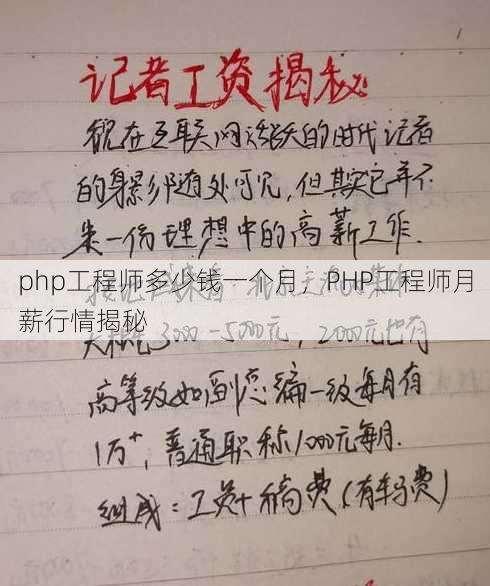 记者工资揭秘
现在互联网活跃的时代记者
的身影随处可见,但其实它并不
是一份理想中的高薪工作.
php工程师多少钱一个月，PHP工程师月
薪行情揭秘
3000-5000元, 2000元也有
高等级如副总编一级每月有
1万+, 普通职称1000元每月.
组成:工资+稿费(有车马费)